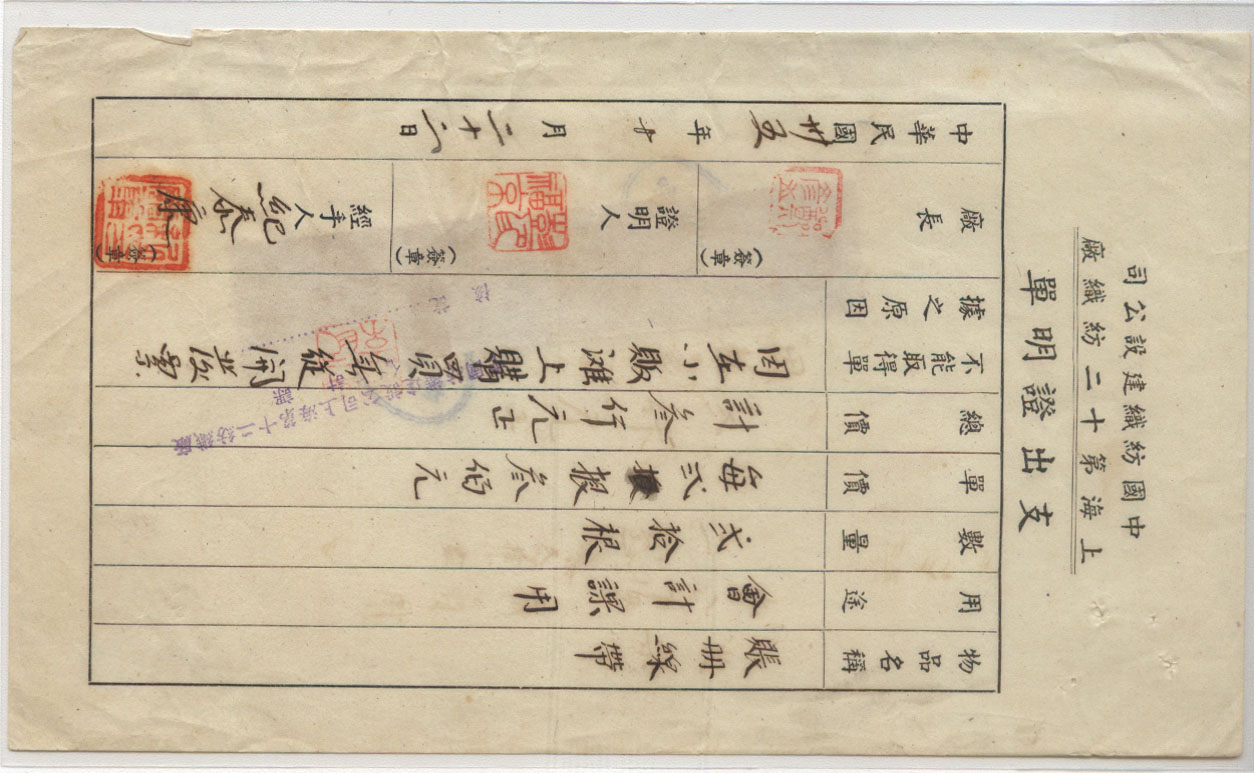 中國紡織建設公司
上海第十二紡織廠
支出證明單
物品名稱 賬冊線帶
用途 會計課用
數量 弍拾根
單價 每弍根叁佰元
總價 計叁仟元正
不能取得單據之原因 因在小販攤上購買無從開發票
廠長 (簽章)
證明人 (簽章)
經手人 紀泰康 (簽章)
中華民國卅五年十月二十六日
公司上海第十二紡織廠
課